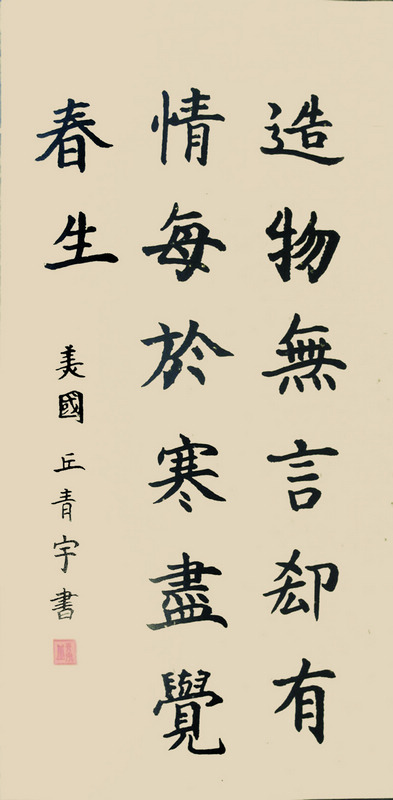 造物無言卻有
情每於寒盡覺
春生
美國 丘青宇書